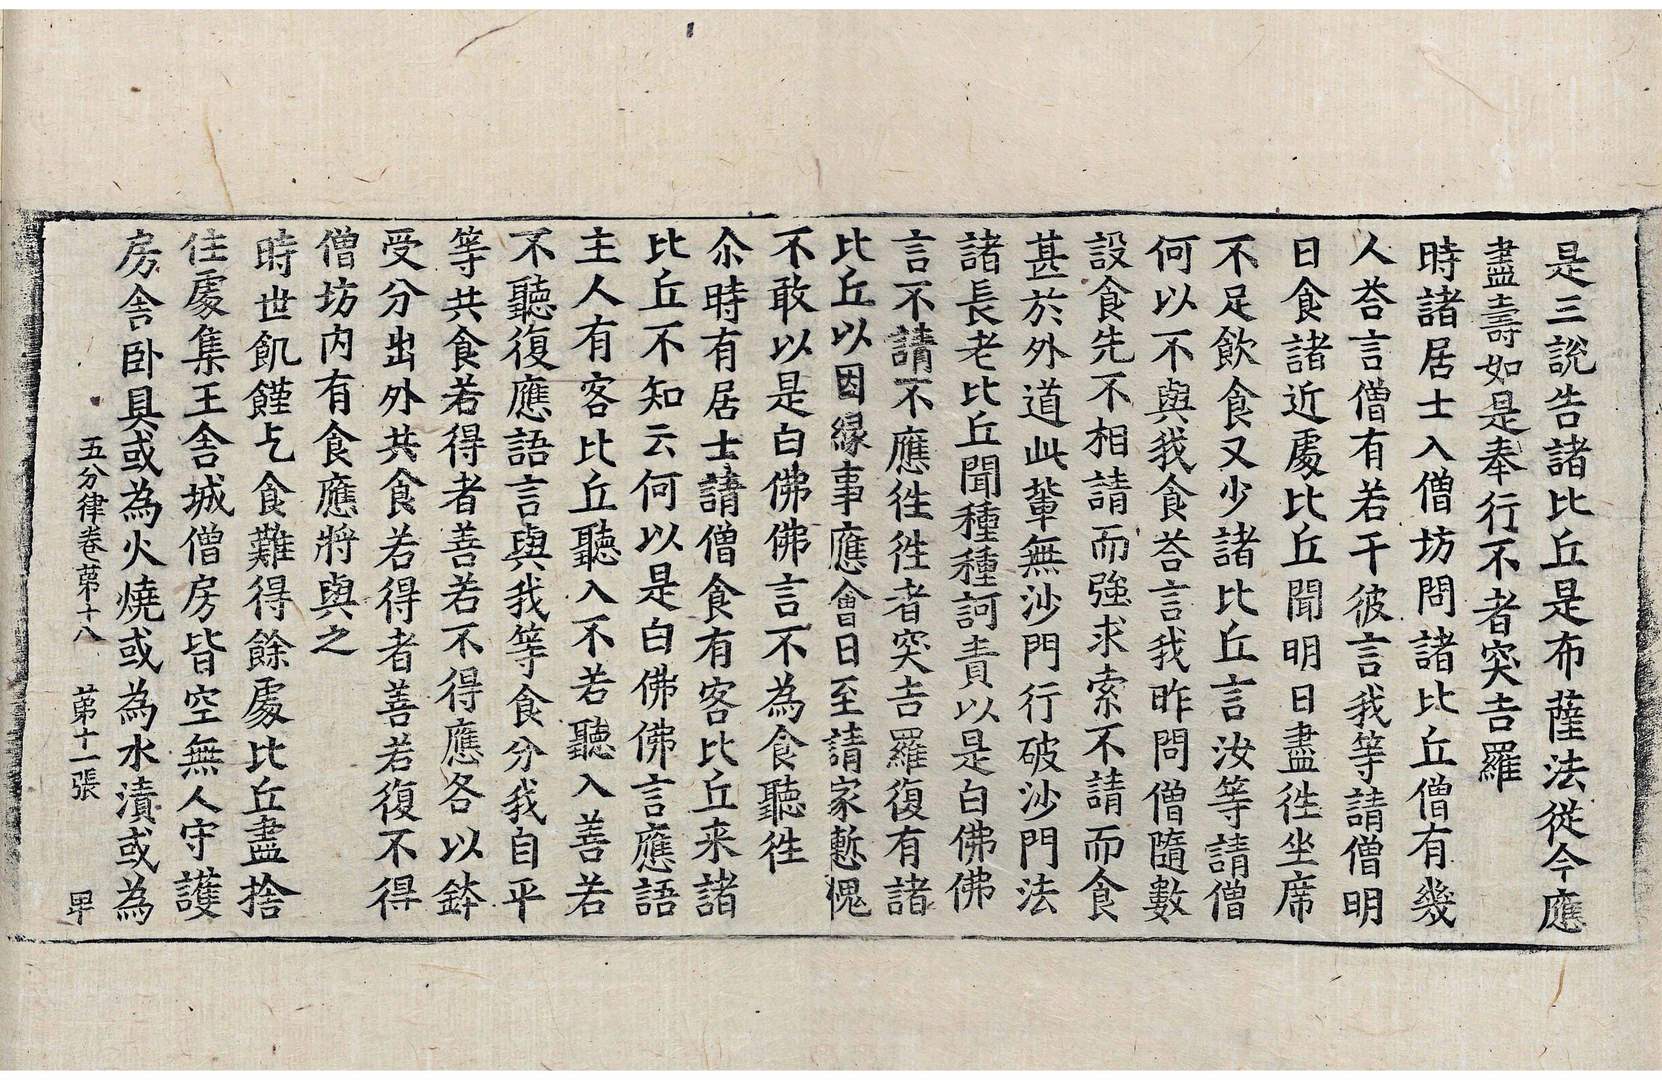 是三說告諸比丘是布薩法從今應
盡壽如是奉行不者突吉羅
時諸居士入僧坊問諸比丘僧有幾
人荅言僧有若干彼言我等請僧明
日食諸近處比丘聞明日盡徃坐席
不足飲食又少諸比丘言汝等請僧
何以不與我食荅言我昨問僧隨數
設食先不相請而強求索不請而食
甚於外道此輩無沙門行破沙門法
諸長老比丘聞種種訶責以是白佛佛
言不請不應徃徃者突吉羅復有諸
比丘以因緣事應會日至請家慙愧
不敢以是白佛佛言不為食聽徃
尒時有居士請僧食有客比丘来諸
比丘不知云何以是白佛佛言應語
主人有客比丘聽入不若聽入善若
不聽復應語言與我等食分我自平
等共食若得者善若不得應各以鉢
受分出外共食若得者善若復不得
僧坊内有食應將與之
時世飢饉乞食難得餘處比丘盡捨
住處集王舍城僧房皆空無人守護
房舍卧具或為火燒或為水漬或為
五分律卷苐十八 苐十一張 甲